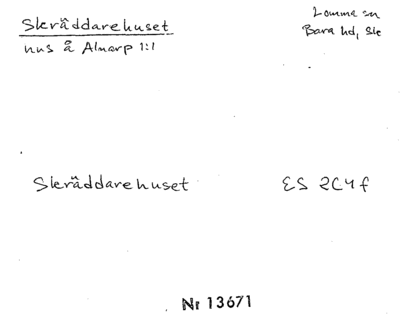 Skräddarehuset
Lomma sn
hus å Alnarp 1:1
Bara hd, Sk
Skräddarehuset
ES 2C4f
Nr 13671